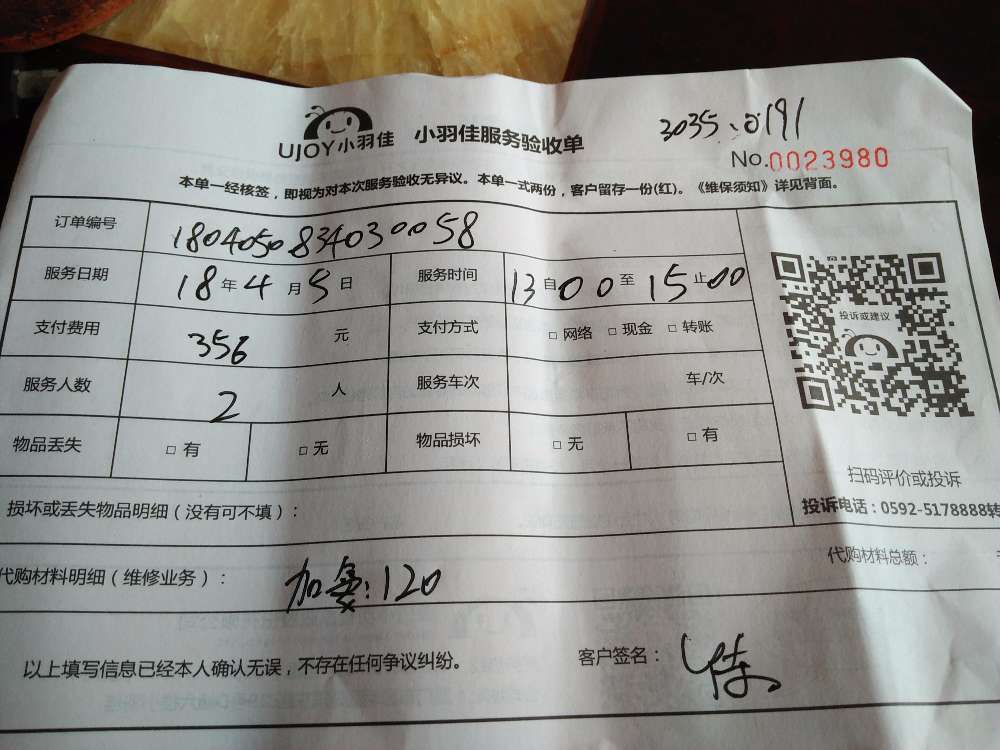 3035、0191
UJOY小羽佳 小羽佳服务验收单
No.0023980
本单一经核签，即视为对本次服务验收无异议。本单一式两份，客户留存一份(红)。《维保须知》详见背面。
订单编号 1804050834030058
服务日期 18年4月5日 服务时间 13自00至15止00
支付费用 356元 支付方式 □ 网络 □ 现金 □ 转账
投诉或建议
服务人数 2人 服务车次 车/次
物品丢失 □ 有 □ 无 物品损坏 □ 无 □ 有
扫码评价或投诉
投诉电话：0592-5178888转
损坏或丢失物品明细（没有可不填）：
代购材料明细（维修业务）：加氟：120 代购材料总额：
以上填写信息已经本人确认无误，不存在任何争议纠纷。 客户签名：